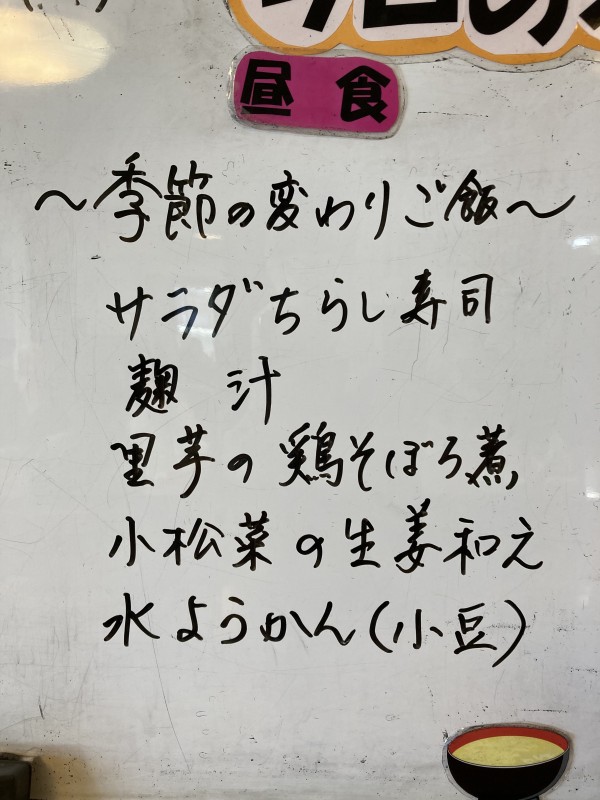 今日の
昼食
〜季節の変わりご飯〜
サラダちらし寿司
麹汁
里芋の鶏そぼろ煮
小松菜の生姜和え
水ようかん(小豆)